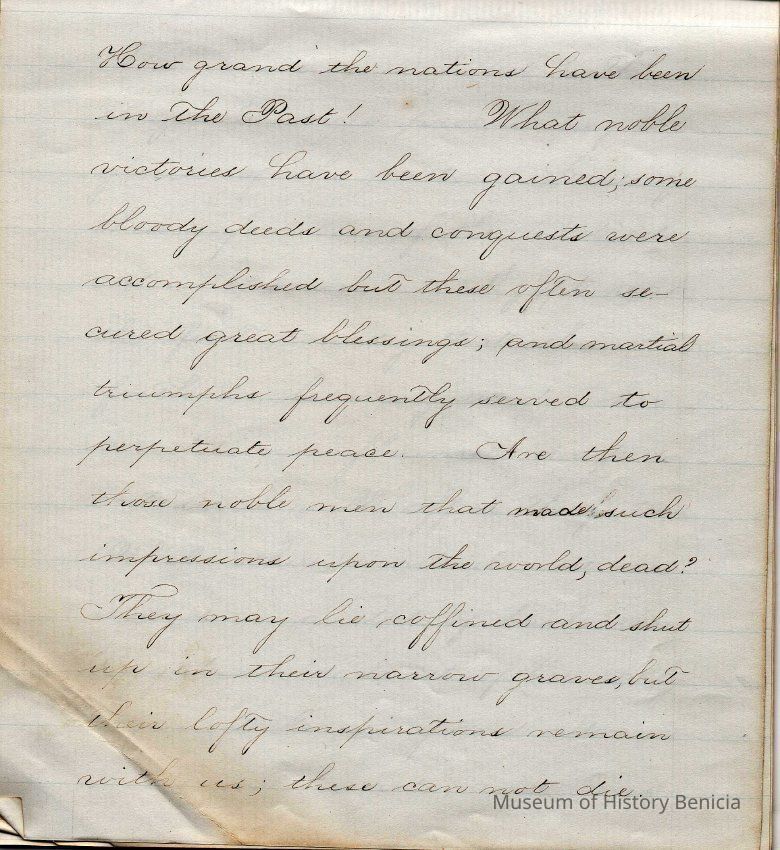 How grand the nations have been
in The Past! What noble
victories have been gained; some
bloody deeds and conquests were
accomplished but these often se-
cured great blessings; and martial
triumphs frequently served to
perpetuate peace. Are then
those noble men that made such
impressions upon the world, dead?
They may lie coffined and shut
up in their narrow graves, but
their lofty inspirations remain
with us; these can not die.
Museum of History Benicia